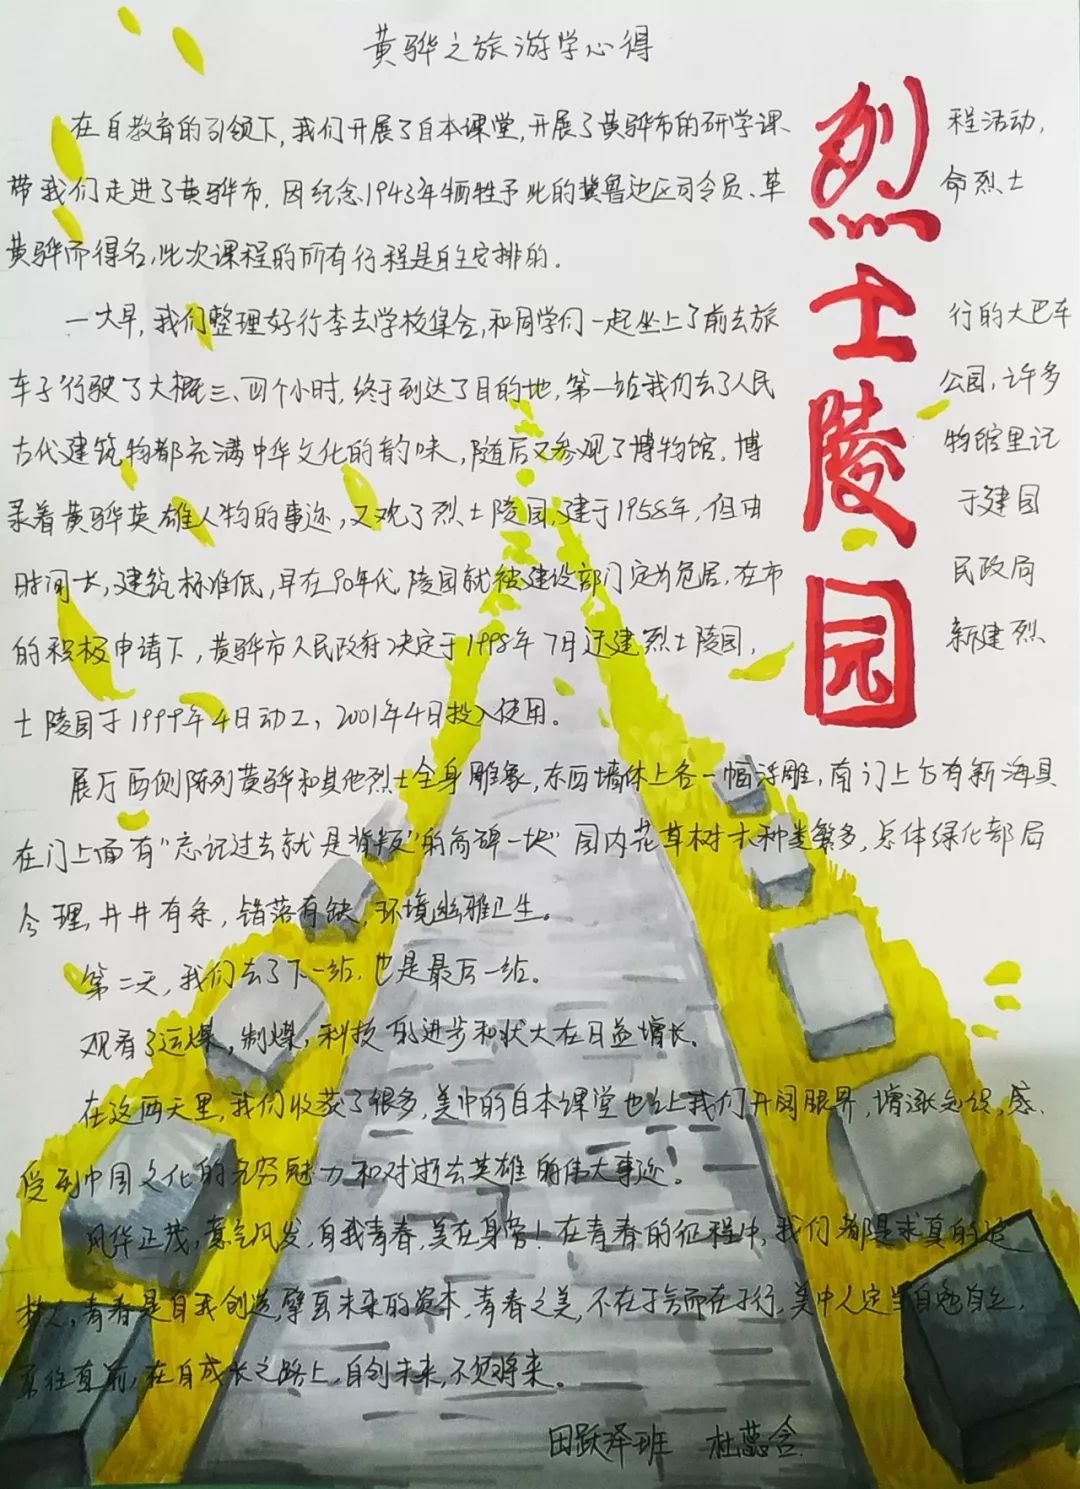 黄骅之旅游学心得
在自教育的引领下,我们开展了自本课堂,开展了黄骅市的研学课程活动,
带我们走进了黄骅市,因纪念1943年牺牲于此的冀鲁边区司令员、革命烈士
黄骅而得名,此次课程的所有行程是自主安排的。
一大早,我们整理好行李去学校集合,和同学们一起坐上了前去旅行的大巴车
车子行驶了大概三、四个小时,终于到达了目的地,第一站我们去了人民公园,许多
古代建筑物都充满中华文化的韵味,随后又参观了博物馆,博物馆里记
录着黄骅英雄人物的事迹,又观了烈士陵园,建于1958年,但由于建园
时间长,建筑标准低,早在90年代,陵园就被建设部门定为危居,在市民政局
的积极申请下,黄骅市人民政府决定于1998年7月迁建烈士陵园,新建烈
士陵园于1999年4日动工,2001年4日投入使用。
展厅西侧陈列黄骅和其他烈士全身雕象,东西墙体上各一幅浮雕,南门上方有新海县
在门上面有“忘记过去就是背叛”的高碑一块”园内花草树木种类繁多,总体绿化部局
合理,井井有条,错落有缺,环境幽雅卫生。
第二天,我们去了下一站,也是最后一站。
观看了运煤,制煤,科技的进步和状大在日益增长。
在这两天里,我们收获了很多,美中的自本课堂也让我们开阔眼界,增涨知识,感
受到中国文化的无穷魅力和对逝去英雄的伟大事迹。
风华正茂,意气风发,自我青春,美在身旁!在青春的征程中,我们都是求真的追
梦人,青春是自我创造,擘画未来的资本,青春之美,不在于言而在于行,美中人定当自勉自立,
勇往直前,在自成长之路上,自创未来,不负将来。
田跃泽班 杜蕊含
烈士陵园